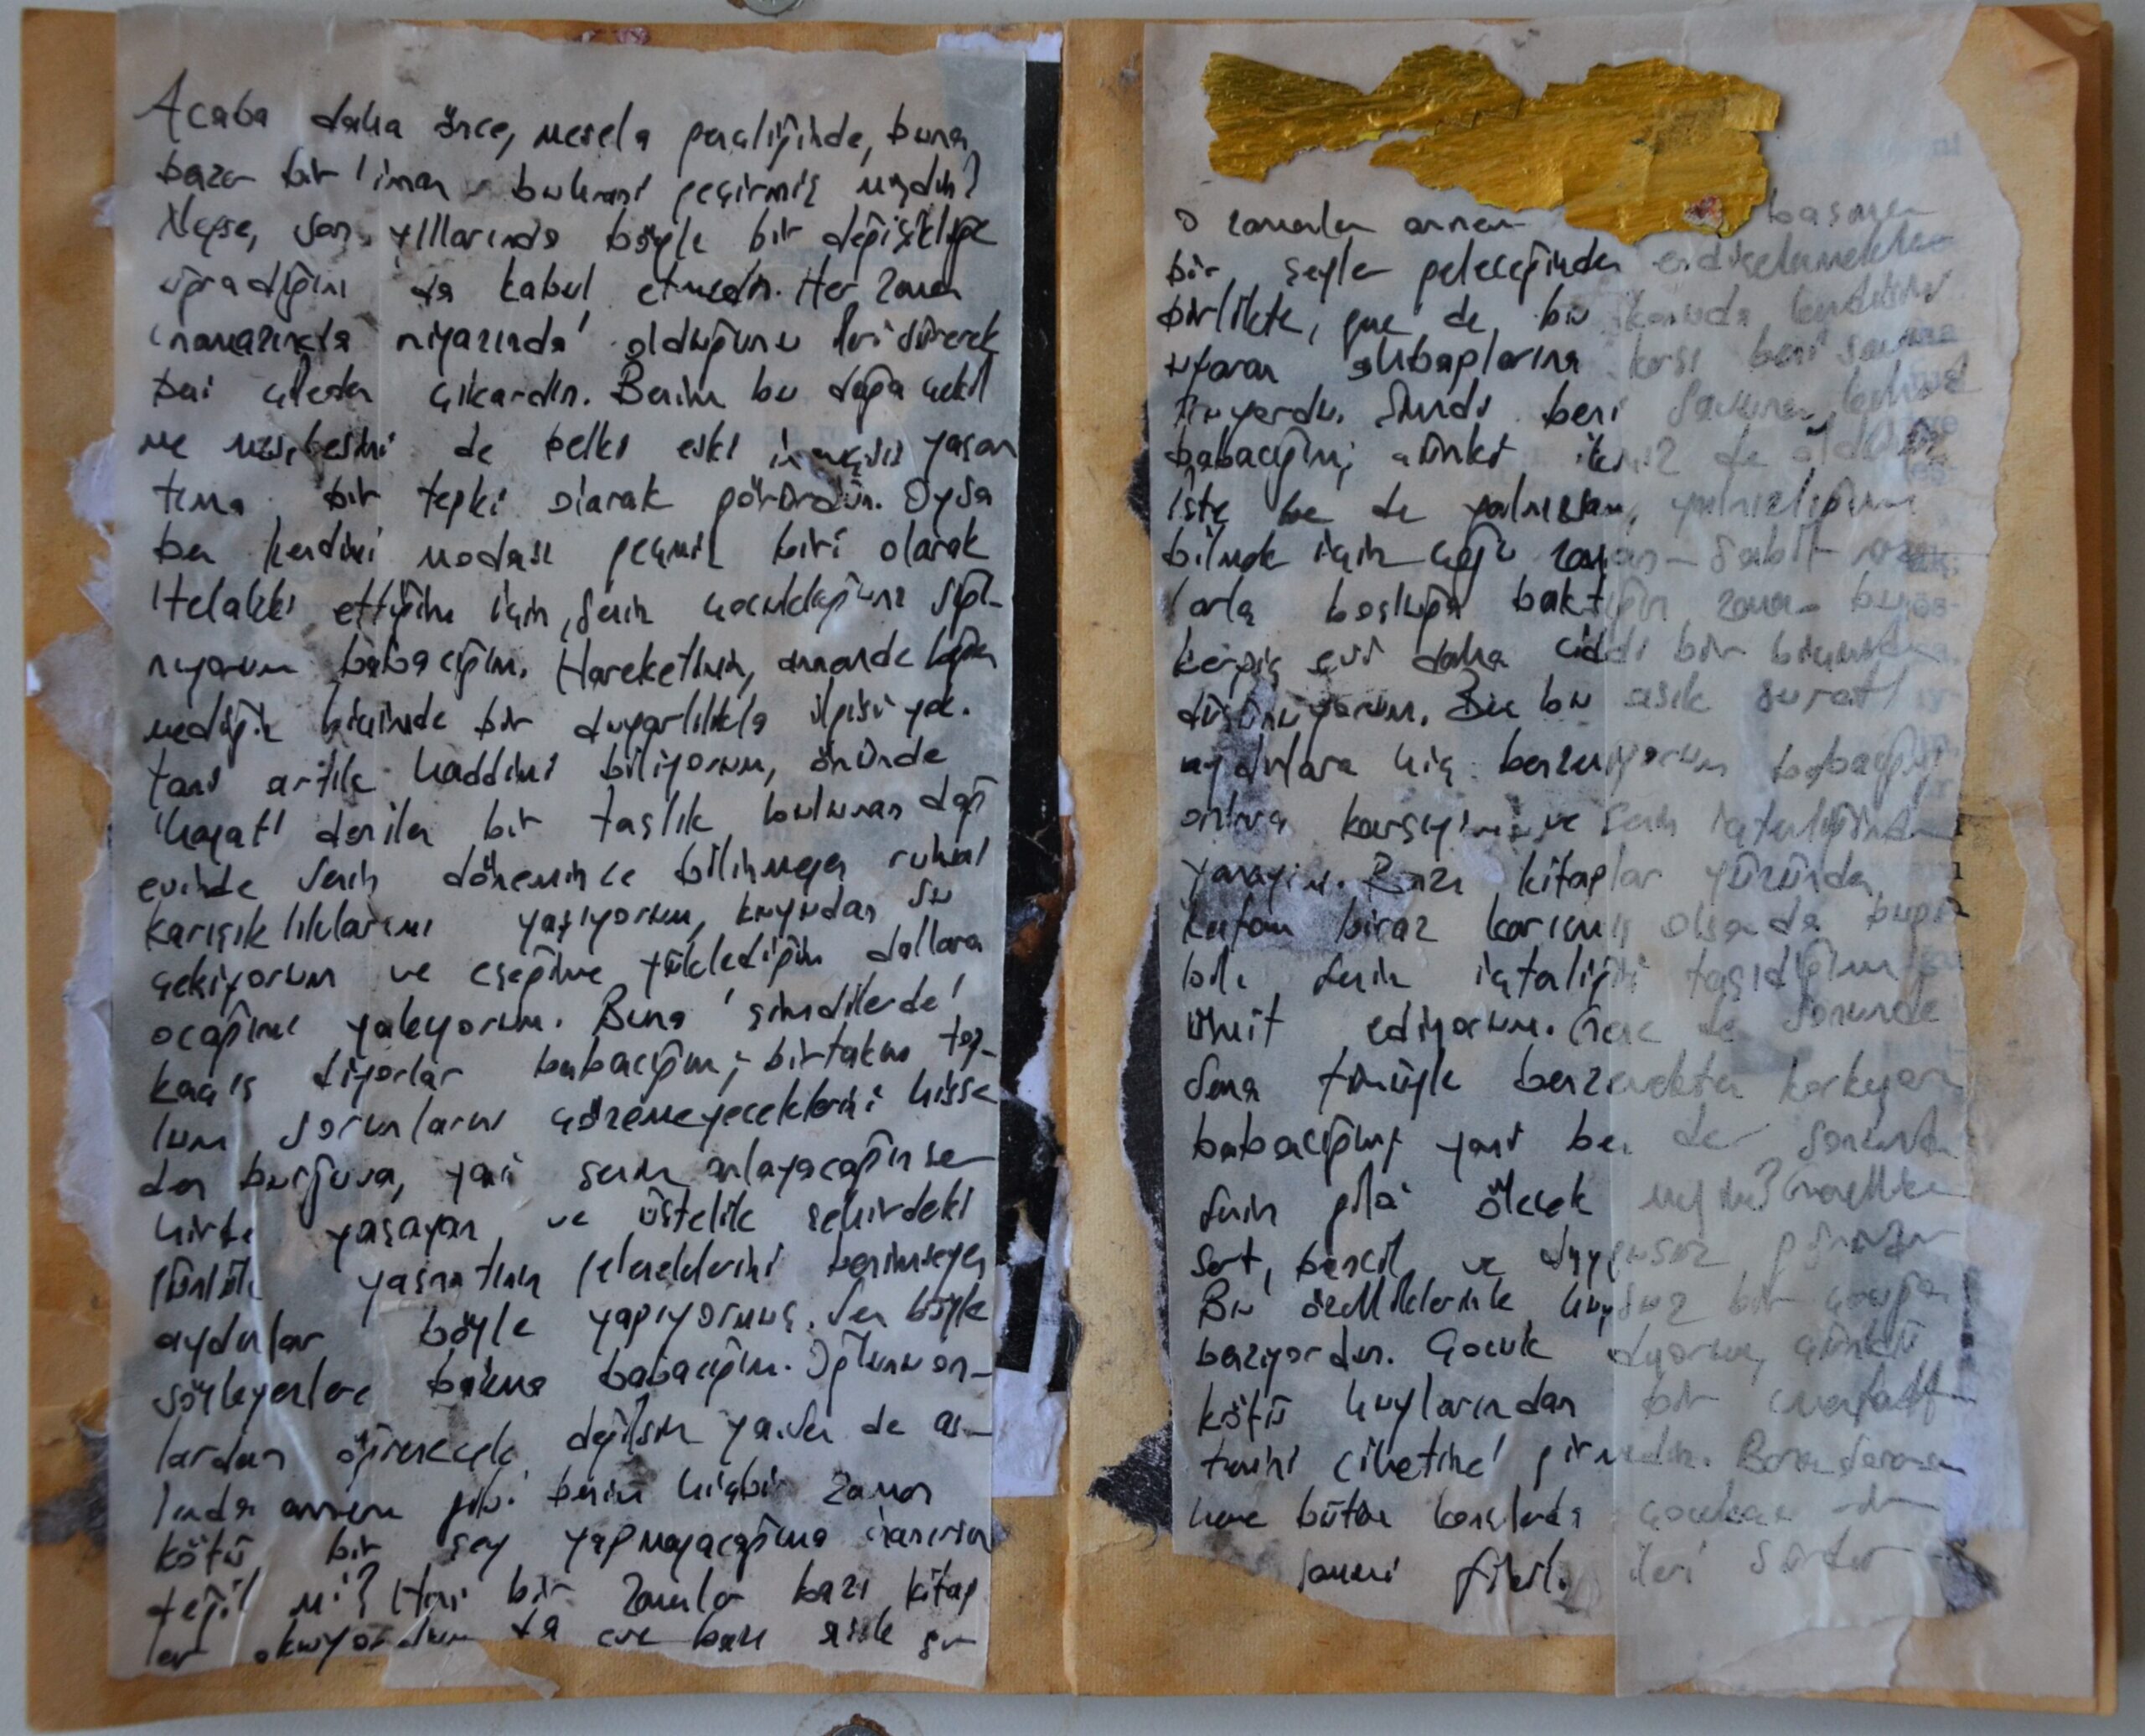 Acaba daha önce, mesela gençliğinde, buna
benzer bir 'iman buhranı' geçirmiş miydin?
Neyse, son yıllarında böyle bir değişikliğe
uğradığını da kabul etmedin. Her zaman
'namazında niyazında' olduğunu ileri sürerek
beni çileden çıkardın. Benim bu dağa çekil
me de belki eski inançsız yaşan
tıma bir tepki olarak görürdün. Oysa
ben kendimi modası geçmiş biri olarak
telakki ettiğim için, senin çocukluğuna sığı-
nıyorum babacığım. Hareketimin, annemde beğen
mediğin biçimde bir duyarlılıkla ilgisi yok.
Yani artık haddimi biliyorum, önünde
'hayat' denilen bir taşlık bulunan dağ
evinde senin döneminde bilinmeyen ruhsal
karışıklıklarımı yaşıyorum, kuyudan su
çekiyorum ve eşeğime yüklediğim dallarla
ocağımı yakıyorum. Buna 'şimdilerde'
kaçış diyorlar babacığım; birtakım top-
lum sorunlarını çözemeyeceklerini hisse
den burjuva, yani senin anlayacağın şe
hirde yaşayan ve üstelik şehirdeki
günlük yaşantının geleneklerini benimseyen
aydınlar böyle yapıyormuş. Sen böyle
söyleyenlere bakma babacığım. Oğlunu on-
lardan öğrenecek değilsin ya. Sen de as-
lında annem gibi benim hiçbir zaman
kötü bir şey yapmayacağıma inanırsın
değil mi? Hani bir zamanlar bazı kitap
lar okuyordum da eve bazı asık su
o zamanlar annem başıma
bir şeyler geleceğinden endişelenmekle
birlikte, gene de, bu konuda kendisini
uyaran ahbaplarına karşı beni savunu
yordu. Şimdi beni savunan kalmadı
babacığım; çünkü ikiniz de öldünüz
İşte ben de yalnızım, yalnızlığımı
bilmek için çoğu zaman sabit
larla boşluğa baktığım zaman bu
kerpiç evi daha ciddi bir biçimde
düşünüyorum. Ben bu asık suratlı
aydınlara hiç benzemiyorum babacığım
onlara karşıyım ve senin içtenliğinden
yanayım. Bazı kitaplar yüzünden
kafam biraz karışmış olsa da bugün
bile senin taşıdığımı
ümit ediyorum. Gene de sonunda
sana tümüyle benzemekten korkuyorum
babacığım; yani ben de sonunda
senin gibi ölecek miyim?
Sert, bencil ve duygusuz görünür
Bu özelliklerinle huysuz bir çocuğa
benziyordun. Çocuk diyorum, çünkü
kötü huylarından bir menfaat
temini cihetine' girmedin. Bana sorarsan
hemen bütün konularda
ileri sürdü